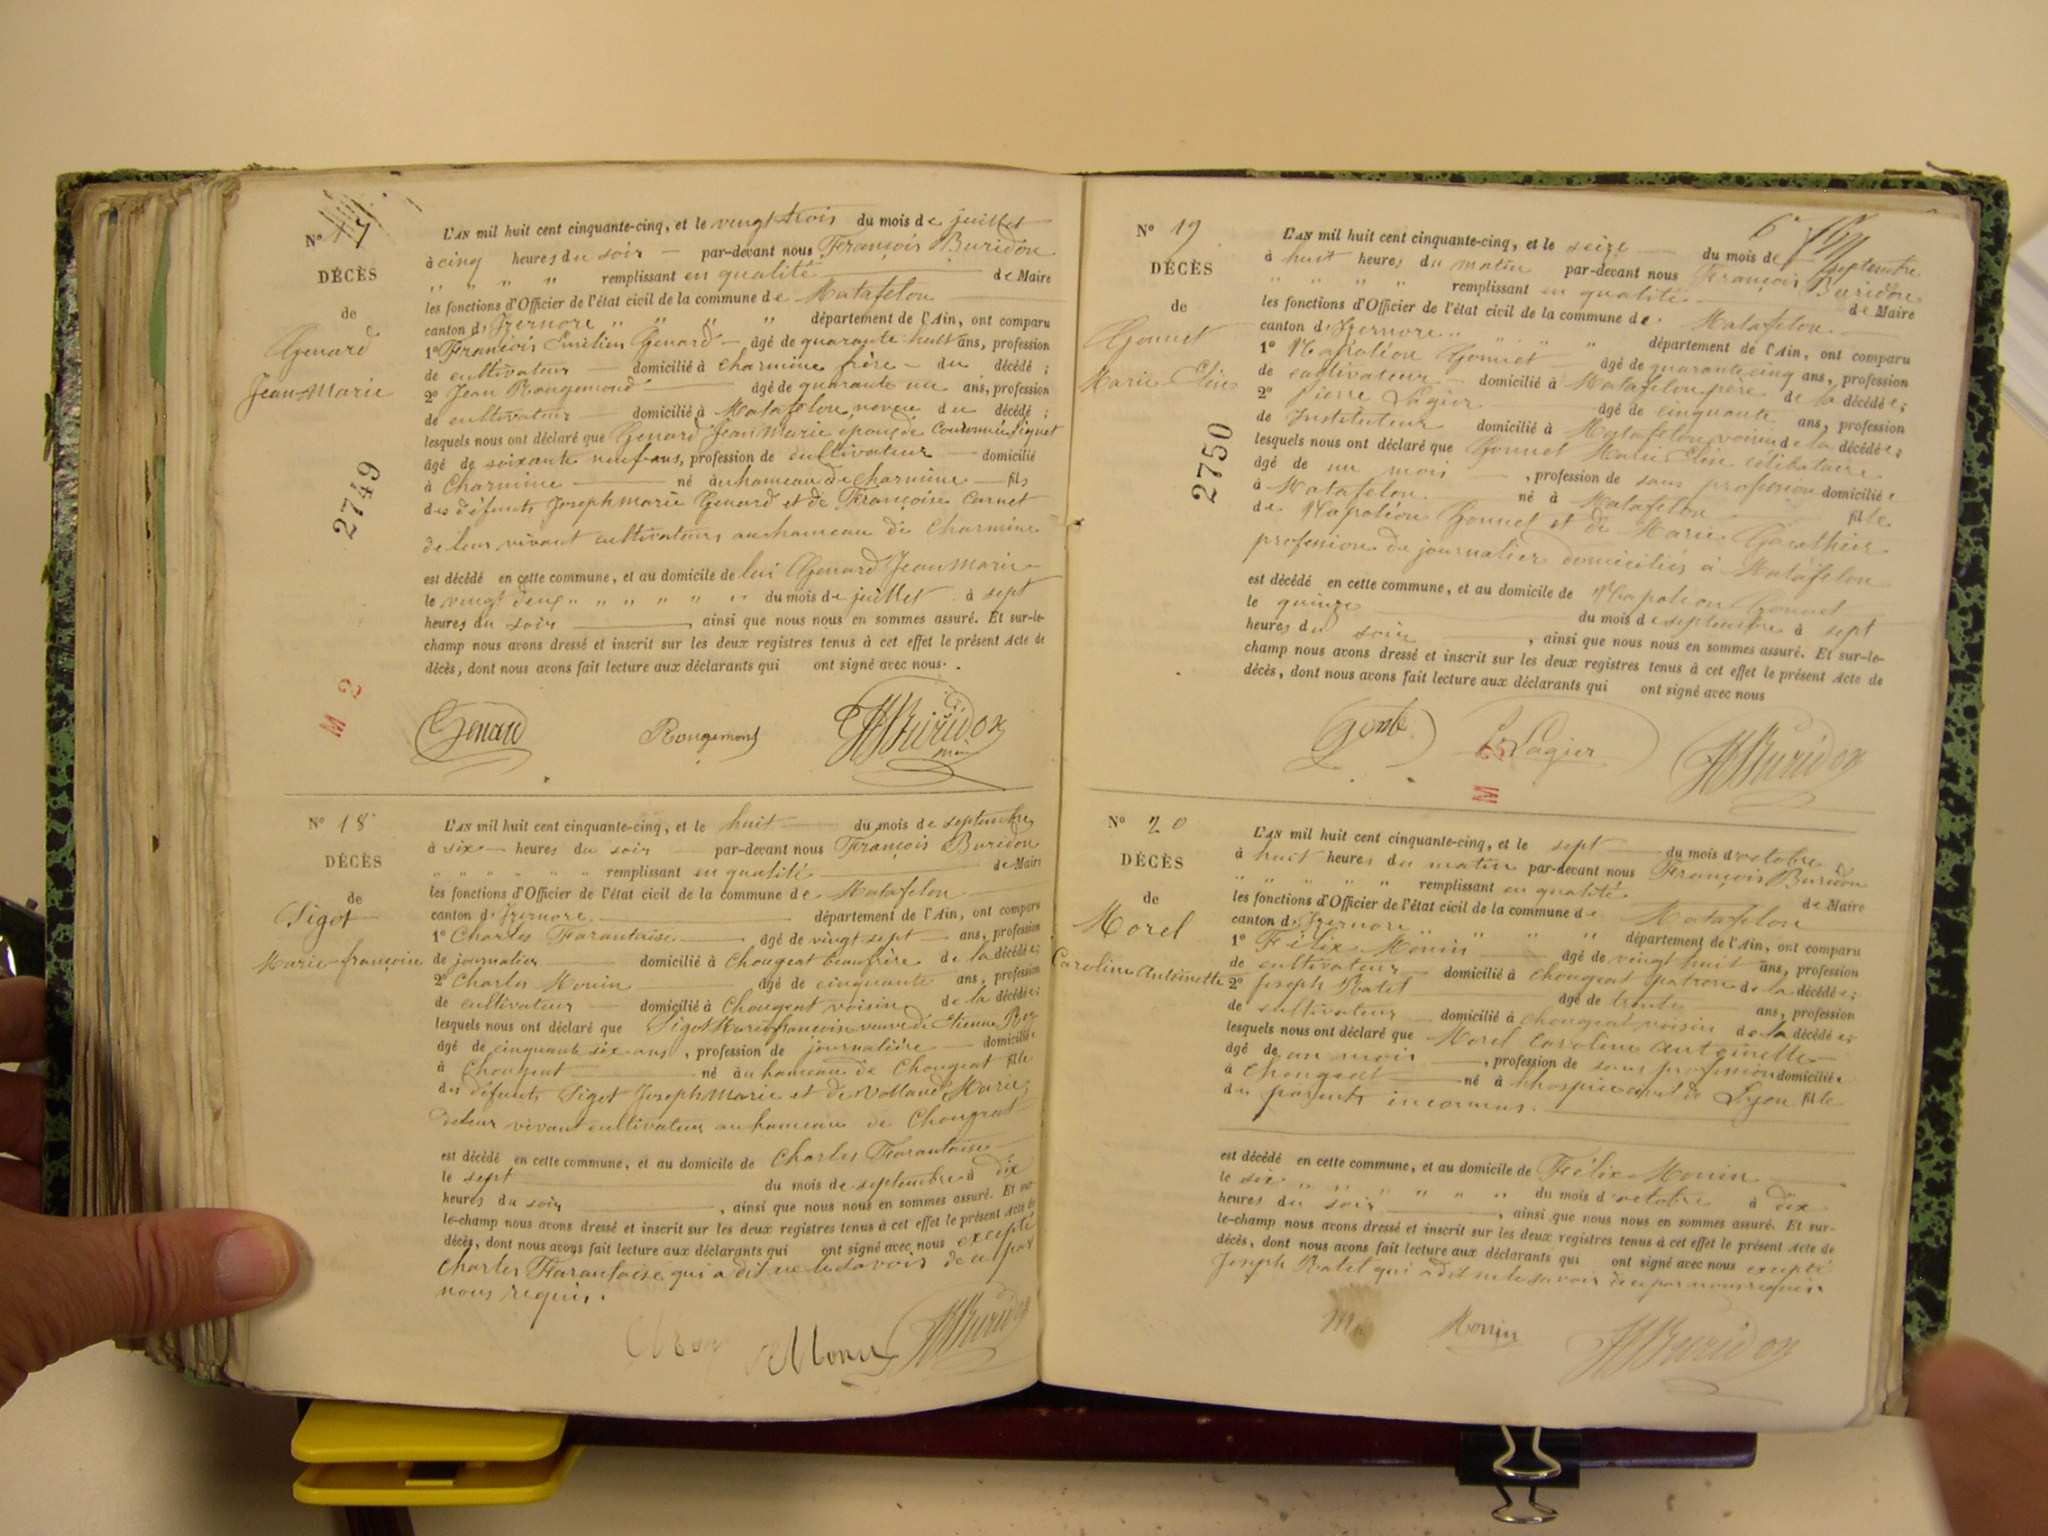 N° 17
DÉCÈS
de
Genard
Jean Marie
2749
M 2
L'AN mil huit cent cinquante-cinq, et le vingt trois du mois de juillet
à cinq heures du soir — par-devant nous François Buridon
" " " " remplissant en qualité — de Maire
les fonctions d'Officier de l'état civil de la commune de Matafelon
canton d'Izernore " " " " département de l'Ain, ont comparu
1° François Emélien Genard — âgé de quarante huit ans, profession
de cultivateur — domicilié à Charmine frère — du décédé ;
2° Jean Rougemond — âgé de quarante un ans, profession
de cultivateur — domicilié à Matafelon, neveu du décédé ;
lesquels nous ont déclaré que Genard Jean Marie époux de
âgé de soixante neuf ans, profession de cultivateur — domicilié
à Charmine — né au hameau de Charmine — fils
des défunts Joseph marie Genard et de Françoise Carnet
de leur vivant cultivateurs au hameau de Charmine
est décédé en cette commune, et au domicile de lui Genard Jean Marie
le vingt deux " " " " " " du mois de juillet à sept
heures du soir —, ainsi que nous nous en sommes assuré. Et sur-le-
champ nous avons dressé et inscrit sur les deux registres tenus à cet effet le présent Acte de
décès, dont nous avons fait lecture aux déclarants qui ont signé avec nous.
Genard Rougemont Buridon
maire
N° 18
DÉCÈS
de
Sigot
Marie françoise
L'AN mil huit cent cinquante-cinq, et le huit — du mois de septembre
à six — heures du soir — par-devant nous François Buridon
" " " " " " remplissant en qualité — de Maire
les fonctions d'Officier de l'état civil de la commune de Matafelon
canton d'Izernore — département de l'Ain, ont comparu
1° Charles Tarantaise — âgé de vingt sept — ans, profession
de journalier — domicilié à Chougeat beaufrère de la décédée ;
2° Charles Monin — âgé de cinquante ans, profession
de cultivateur — domicilié à Chougeat voisin de la décédée ;
lesquels nous ont déclaré que Sigot Marie françoise veuve de Etienne
âgé de cinquante six ans, profession de journalière — domiciliée
à Chougeat — né au hameau de Chougeat fille
des défunts Sigot Joseph Marie et de Volland Marie
de leur vivant cultivateurs au hameau de Chougeat
est décédé en cette commune, et au domicile de Charles Tarantaise
le sept — du mois de septembre à dix
heures du soir —, ainsi que nous nous en sommes assuré. Et sur-
le-champ nous avons dressé et inscrit sur les deux registres tenus à cet effet le présent Acte de
décès, dont nous avons fait lecture aux déclarants qui ont signé avec nous excepté
Charles Tarantaise qui a dit ne le savoir de ce par
nous requis.
Monin Buridon
N° 19
DÉCÈS
de
Gonnet
Marie Elise
2750
M 2
6e
L'AN mil huit cent cinquante-cinq, et le seize — du mois de septembre
à huit heures du matin par-devant nous François Buridon
" " " " remplissant en qualité — de Maire
les fonctions d'Officier de l'état civil de la commune de Matafelon
canton d'Izernore " " " département de l'Ain, ont comparu
1° Napoléon Gonnet — âgé de quarante cinq ans, profession
de cultivateur — domicilié à Matafelon, père de la décédée ;
2° Pierre Lagier — âgé de cinquante ans, profession
de Instituteur domicilié à Matafelon, voisin de la décédée ;
lesquels nous ont déclaré que Gonnet Marie Elise célibataire
âgé de un mois —, profession de sans profession domiciliée
à Matafelon — né à Matafelon — fille
de Napoléon Gonnet et de Marie Gauthier
profession de journalier domiciliés à Matafelon
est décédé en cette commune, et au domicile de Napoléon Gonnet
le quinze — du mois de septembre à sept
heures du soir —, ainsi que nous nous en sommes assuré. Et sur-le-
champ nous avons dressé et inscrit sur les deux registres tenus à cet effet le présent Acte de
décès, dont nous avons fait lecture aux déclarants qui ont signé avec nous
Lagier Buridon
N° 20
DÉCÈS
de
Morel
Caroline Antoinette
L'AN mil huit cent cinquante-cinq, et le sept — du mois d'octobre
à huit heures du matin par-devant nous François Buridon
" " " " " remplissant en qualité — de Maire
les fonctions d'Officier de l'état civil de la commune de Matafelon
canton d'Izernore " " " " département de l'Ain, ont comparu
1° Félix Monin — âgé de vingt huit ans, profession
de cultivateur — domicilié à Chougeat patron de la décédée ;
2° Joseph Ratet — âgé de trente — ans, profession
de cultivateur — domicilié à Chougeat, voisin de la décédée ;
lesquels nous ont déclaré que Morel Caroline Antoinette
âgé de un mois —, profession de sans profession domiciliée
à Chougeat — né à l'hospice civil de Lyon fille
de parents inconnus.
est décédé en cette commune, et au domicile de Félix Monin
le six " " " " " " du mois d'octobre à dix
heures du soir —, ainsi que nous nous en sommes assuré. Et sur-
le-champ nous avons dressé et inscrit sur les deux registres tenus à cet effet le présent Acte de
décès, dont nous avons fait lecture aux déclarants qui ont signé avec nous excepté
Joseph Ratet qui a dit ne le savoir de ce par nous requis.
Monin Buridon